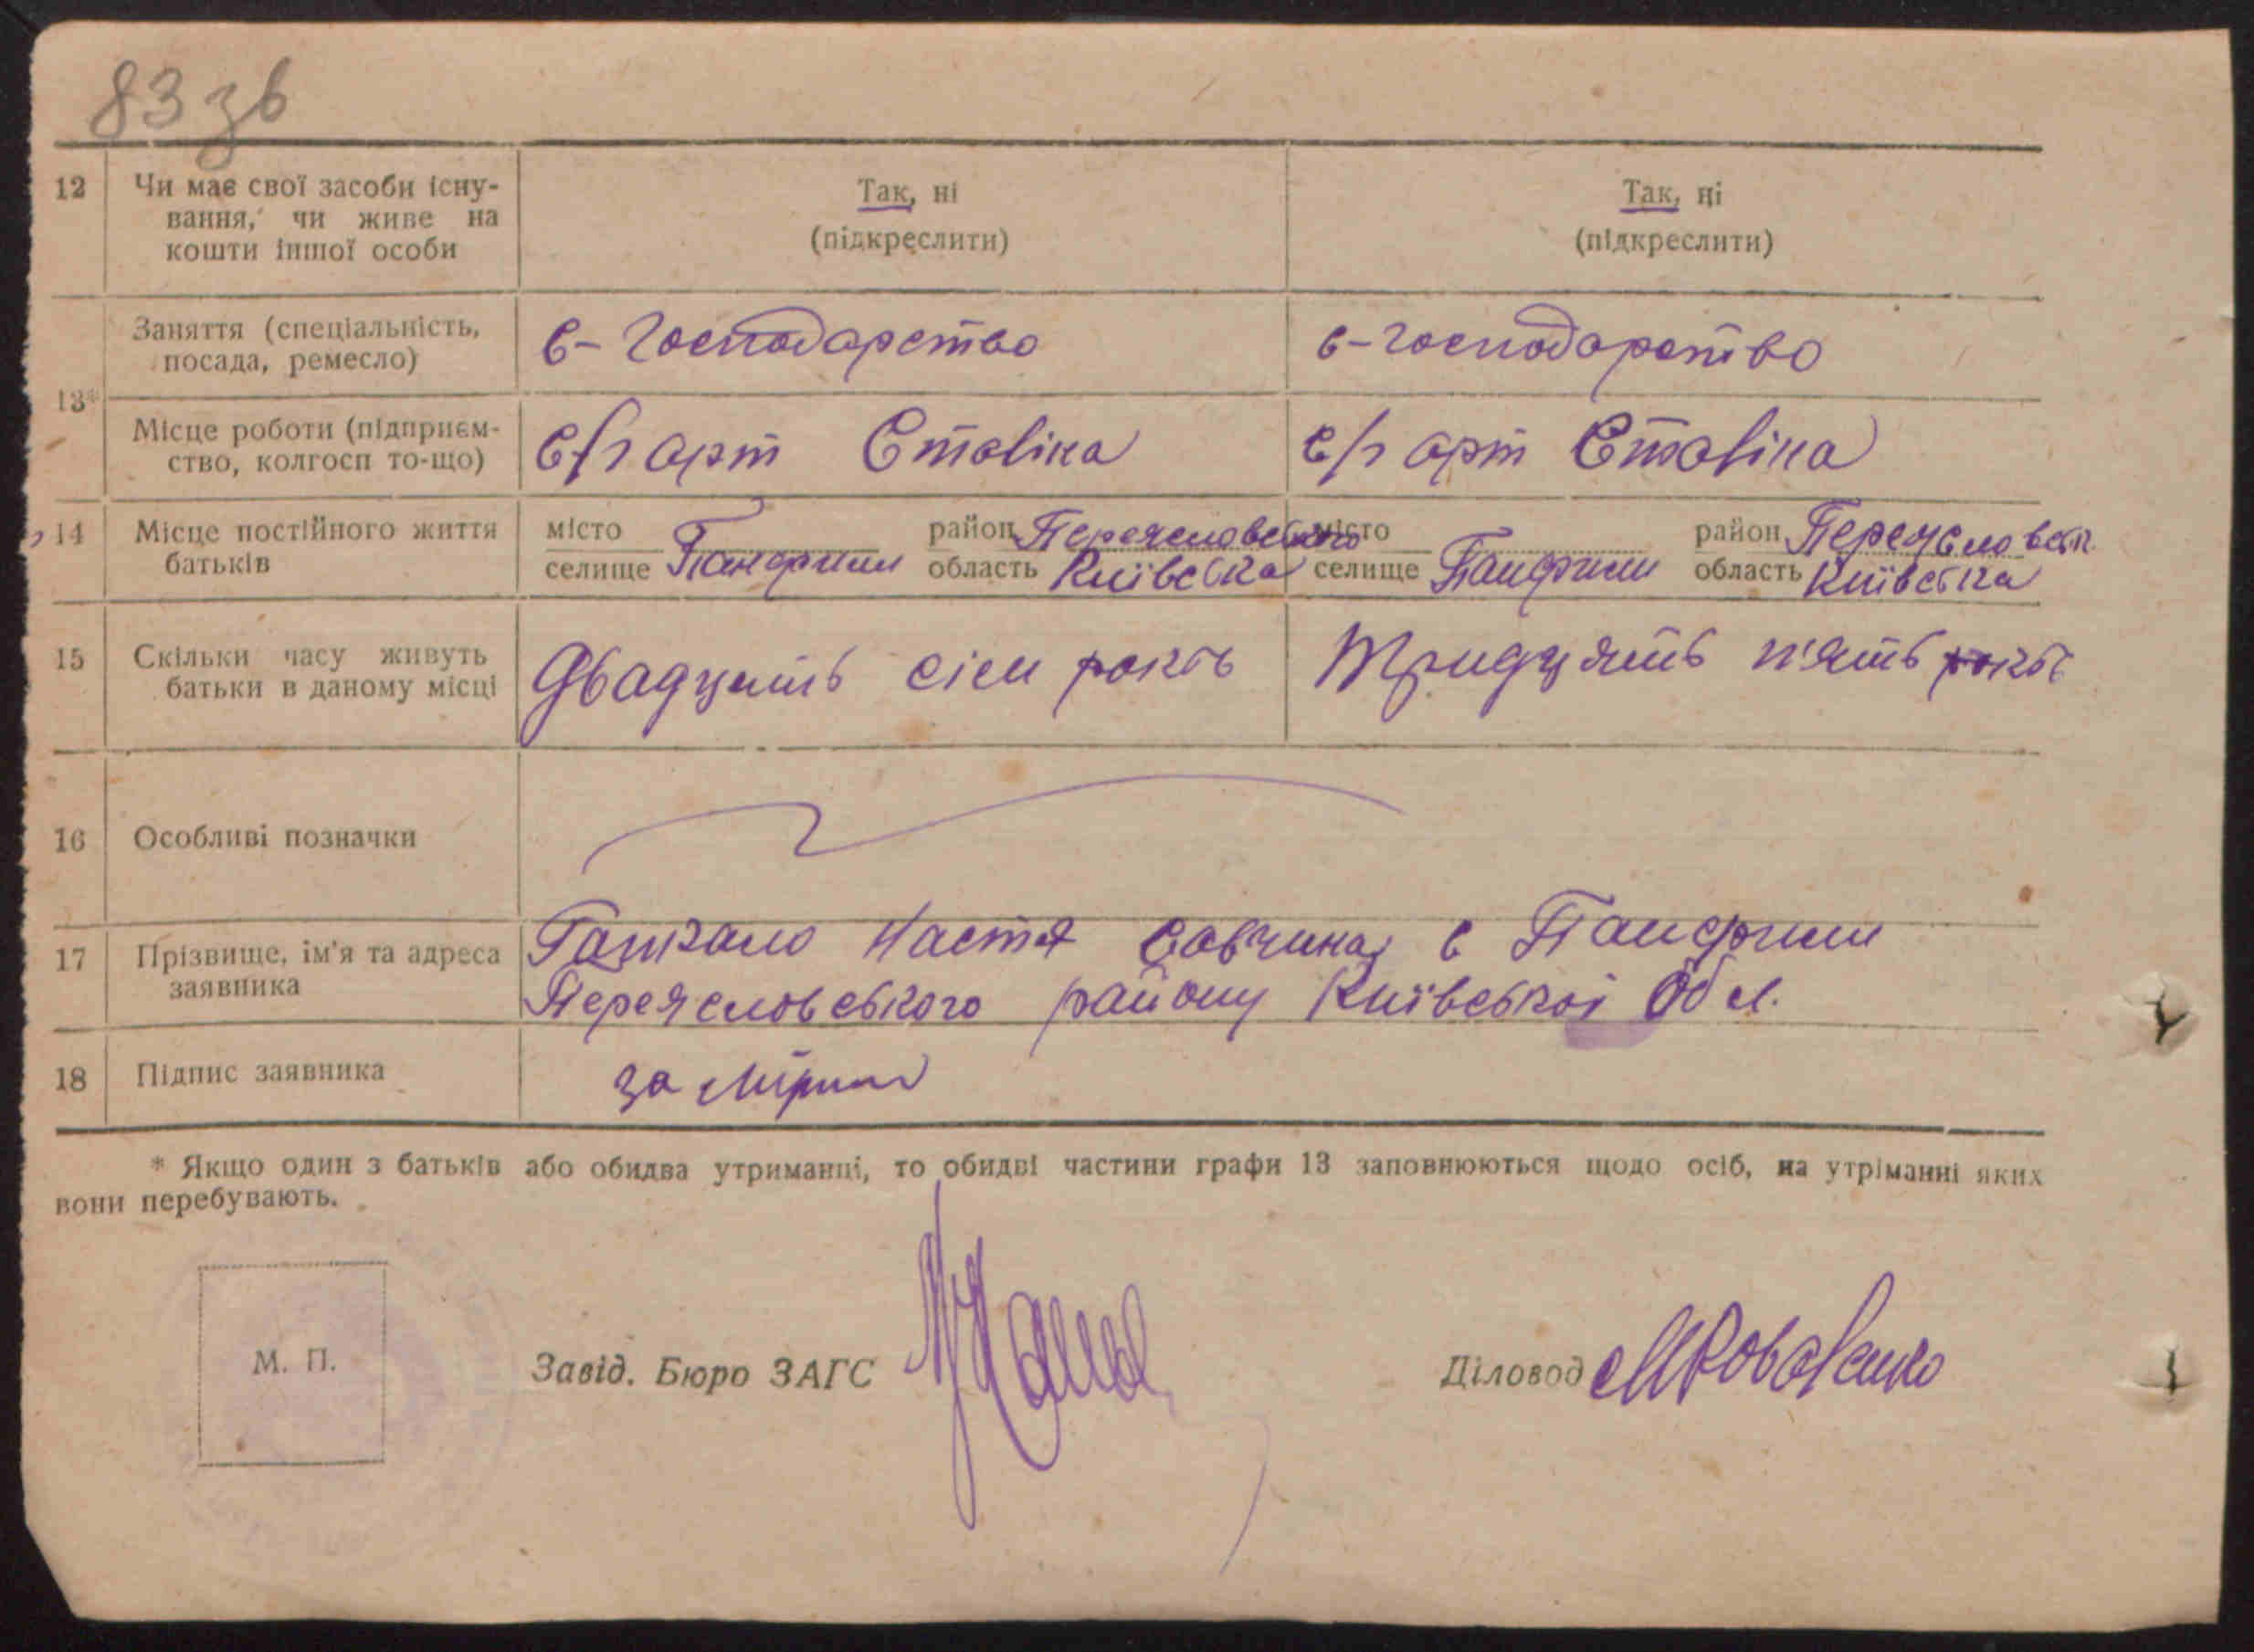 83 зв
12 Чи має свої засоби існу-
вання, чи живе на
кошти іншої особи
Так, ні
(підкреслити)
Так, ні
(підкреслити)
13*
Заняття (спеціальність,
посада, ремесло)
с-господарство
с-господарство
Місце роботи (підприєм-
ство, колгосп то-що)
с/г арт Сталіна
с/г арт Сталіна
14 Місце постійного життя
батьків
місто
селище Панфили
район Переясловського
область Київська
місто
селище Панфили
район Переясловськ.
область Київська
15 Скільки часу живуть
батьки в даному місці
Двадцять сім років
Тридцять п'ять років
16 Особливі позначки
17 Прізвище, ім'я та адреса
заявника
Настя Савчина с Панфили
Переясловського району Київської Обл.
18 Підпис заявника
за
* Якщо один з батьків або обидва утриманці, то обидві частини графи 13 заповнюються щодо осіб, на утріманні яких
вони перебувають.
М. П.
Завід. Бюро ЗАГС
Діловод МКоваленко